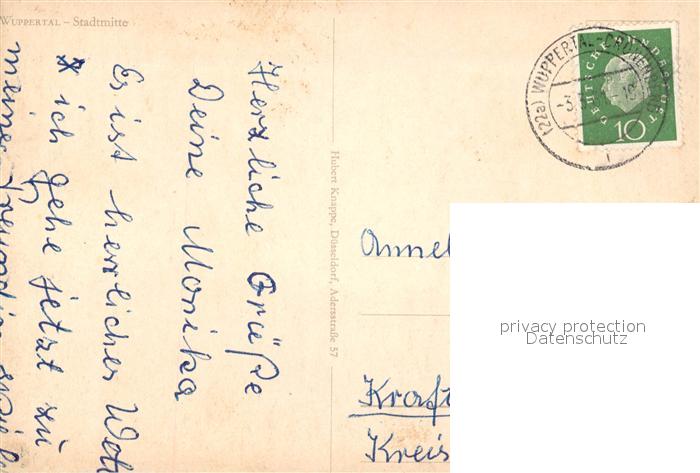 WUPPERTAL – Stadtmitte
Herzliche Grüße
Deine Monika
Es ist herrliches Wet
ich gehe jetzt zu
meiner Freundin
Hubert Knappe, Düsseldorf, Adersstraße 57
DEUTSCHE BUNDESPOST
10
(22a) WUPPERTAL-CRONENBERG
-3.
Annel
privacy protection
Datenschutz
Kraft
Kreis